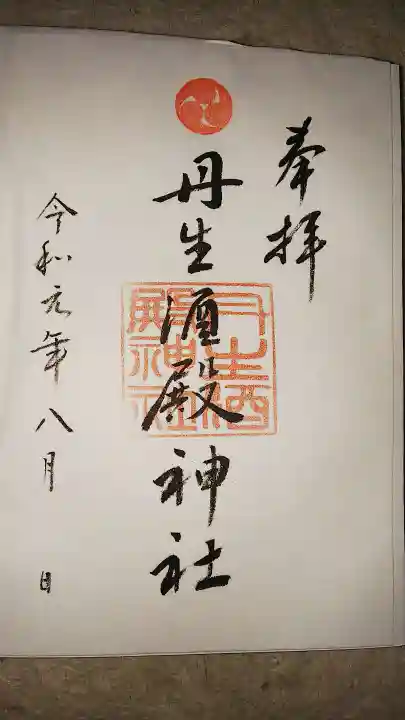 奉拝
丹生酒殿神社
丹生酒
殿神社
令和元年八月 日